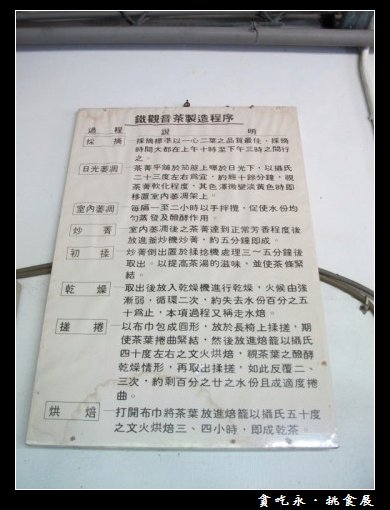 鐵觀音茶製造程序
過程 說明
採摘 採摘標準以一心二葉之品質最佳，採摘
時間大都在上午十時至下午三時之間行
之。
日光萎凋 茶菁平舖於笳藶上曝於日光下，以攝氏
二十三度左右為宜，約經十餘分鐘，視
茶菁軟化程度，其色澤微變淡黃色時即
移置室內萎凋架上。
室內萎凋 每隔一至二小時以手拌攪，促使水份均
勻蒸發及醱酵作用。
炒菁 室內萎凋後之茶菁達到正常芳香程度後
放進釜炒機炒菁，約五分鐘即成。
初揉 炒菁倒出置於揉捻機處理三～五分鐘後
取出。以提高茶湯的滋味，並使茶條緊
結。
乾燥 取出後放入乾燥機進行乾燥，火候由強
漸弱，循環二次，約失去水份百分之五
十為止，本項過程又稱走水焙。
搓捲 以布巾包成圓形，放於長椅上揉搓，期
使茶葉捲曲緊結，然後放進焙籠以攝氏
四十度左右之文火烘焙，視茶葉之醱酵
乾燥情形，再取出揉搓，如此反覆二、
三次，約剩百分之廿之水份且成適度捲
曲。
烘焙 打開布巾將茶葉放進焙籠以攝氏五十度
之文火烘焙三、四小時，即成乾茶。
貪吃永·挑食展